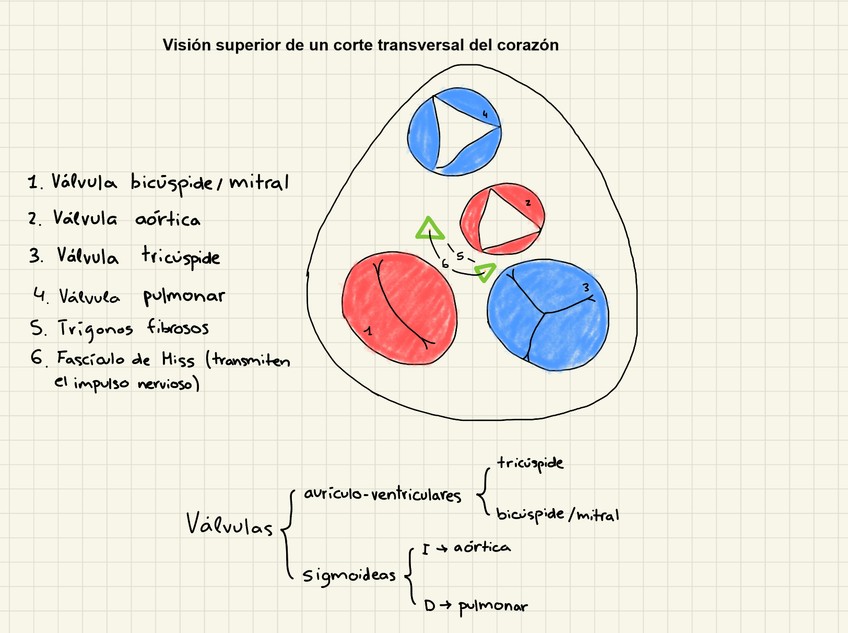 Visión superior de un corte transversal del corazón
4
2
5
6
3
1
1. Válvula bicúspide/mitral
2. Válvula aórtica
3. Válvula tricúspide
4. Válvula pulmonar
5. Trígonos fibrosos
6. Fascículo de Hiss (transmiten
el impulso nervioso)
Válvulas
aurículo-ventriculares
tricúspide
bicúspide/mitral
Sigmoideas
I → aórtica
D → pulmonar